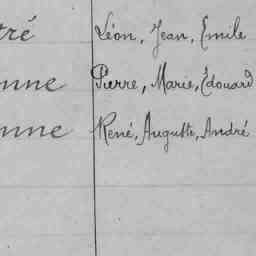 tré Léon, Jean, Emile
onne Pierre, Marie, Édouard
onne René, Auguste, André